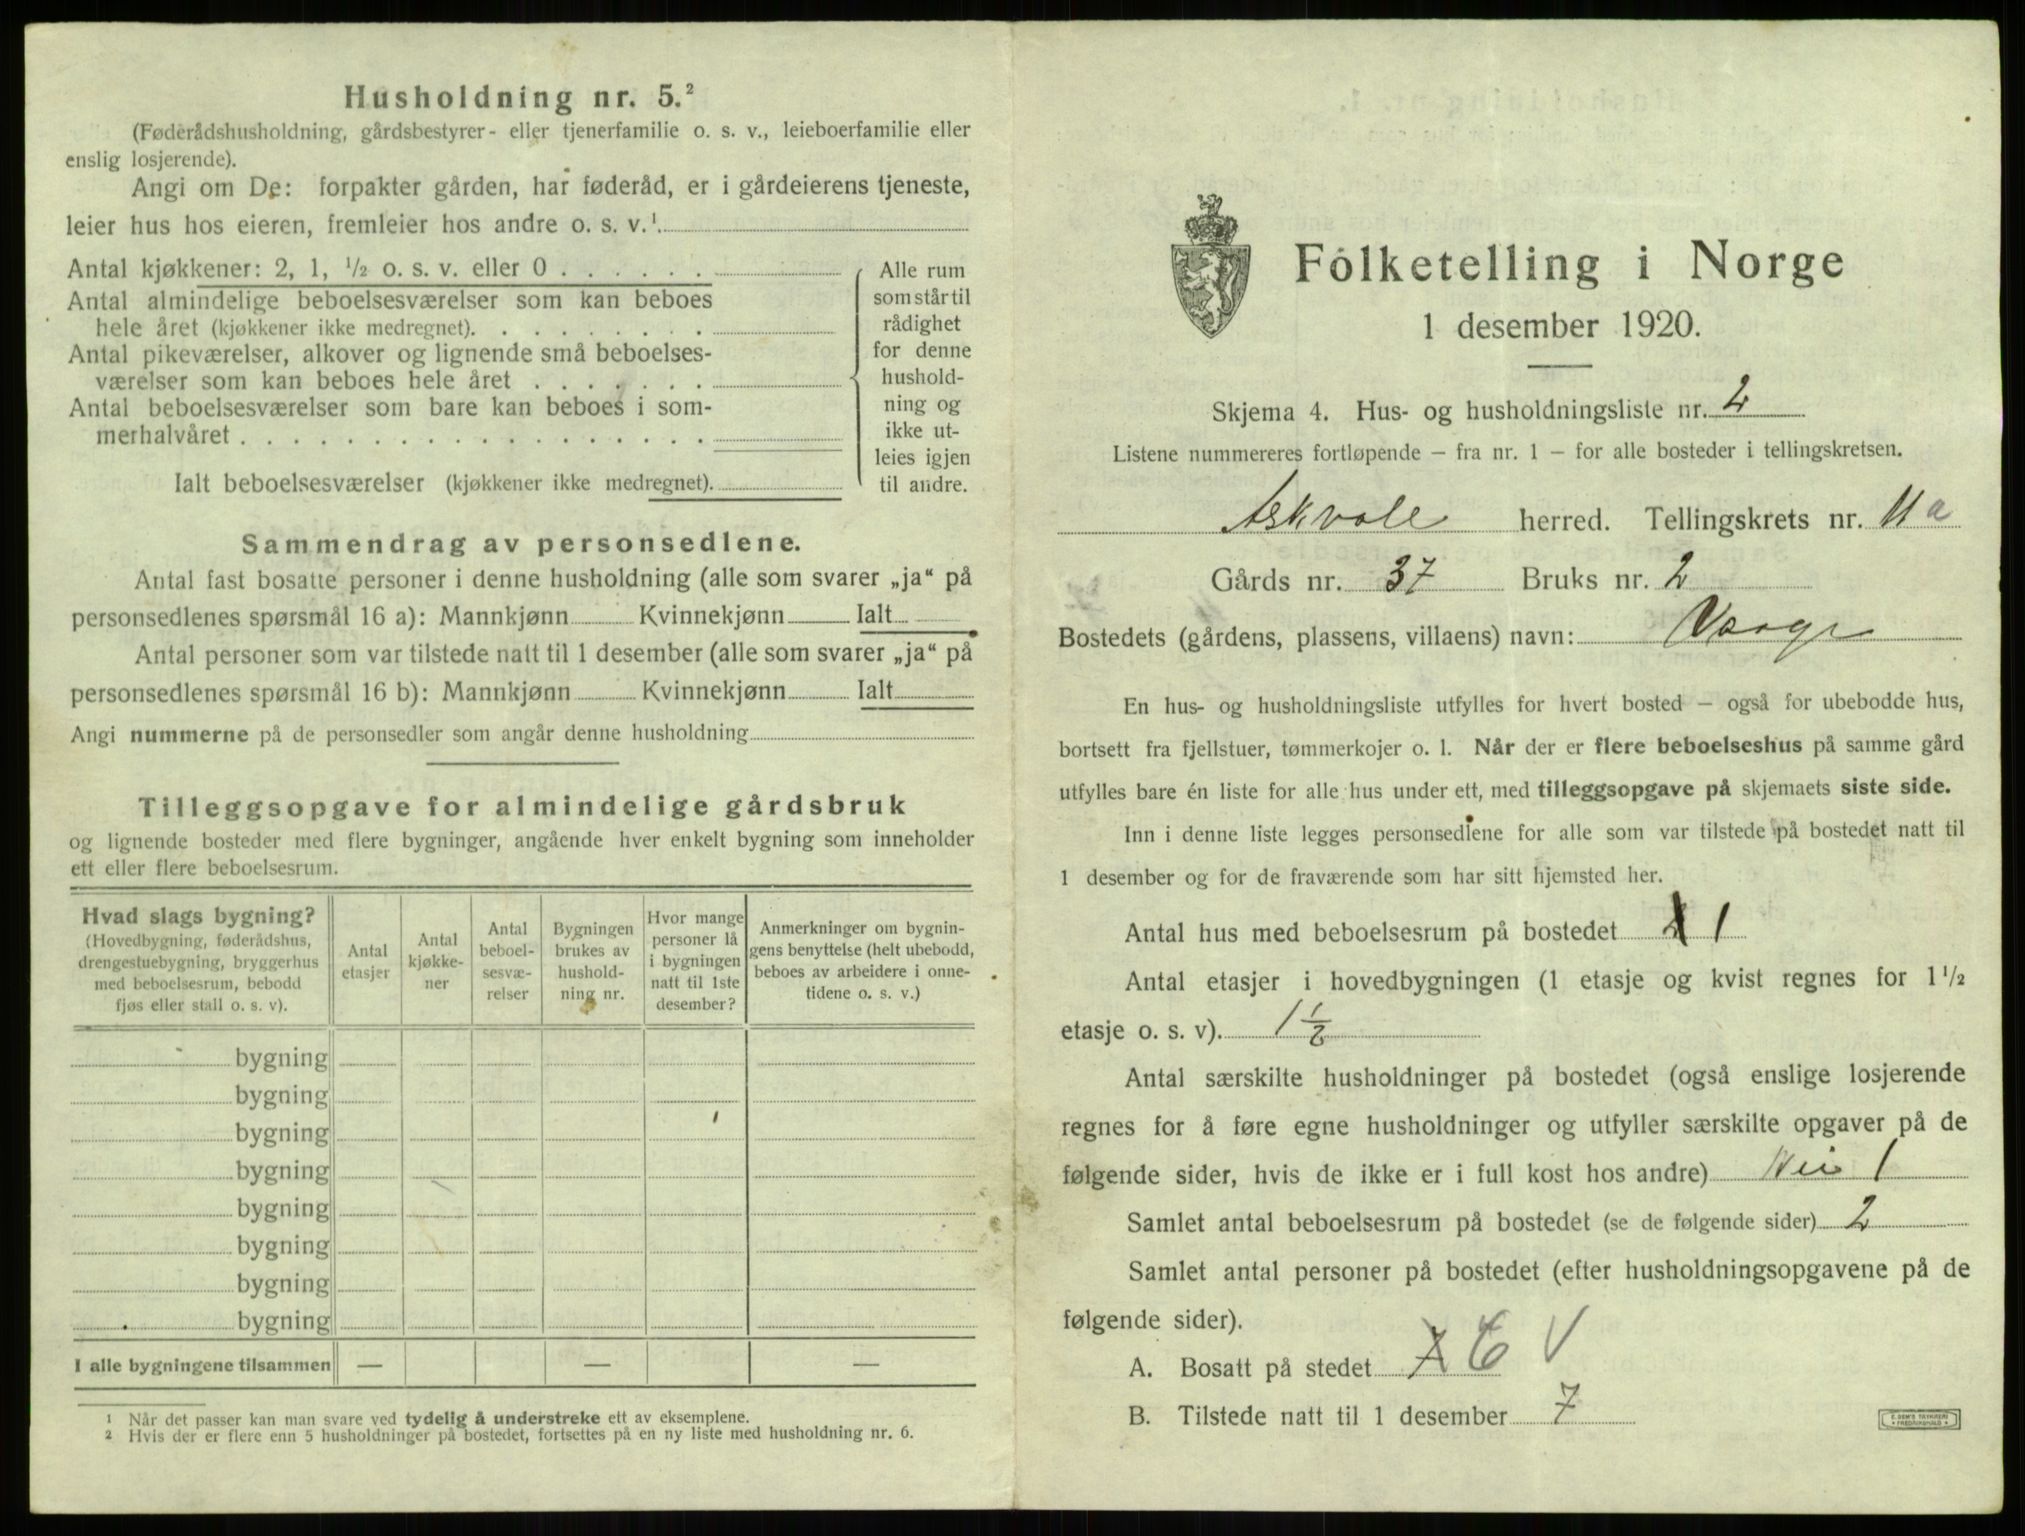 Husholdning nr. 5.²
(Føderådshusholdning, gårdsbestyrer- eller tjenerfamilie o. s. v., leieboerfamilie eller
enslig losjerende).
Angi om De: forpakter gården, har føderåd, er i gårdeierens tjeneste,
leier hus hos eieren, fremleier hos andre o. s. v.¹
Antal kjøkkener: 2, 1, ½ o. s. v. eller 0 . . . . . .
Antal almindelige beboelsesværelser som kan beboes
hele året (kjøkkener ikke medregnet). . . . . . . . .
Antal pikeværelser, alkover og lignende små beboelses-
værelser som kan beboes hele året . . . . . . .
Antal beboelsesværelser som bare kan beboes i som-
merhalvåret . . . . . . . . . . . . . . . . . .
Ialt beboelsesværelser (kjøkkener ikke medregnet).
Alle rum
som står til
rådighet
for denne
hushold-
ning og
ikke ut-
leies igjen
til andre.
Sammendrag av personsedlene.
Antal fast bosatte personer i denne husholdning (alle som svarer „ja“ på
personsedlenes spørsmål 16 a): Mannkjønn Kvinnekjønn Ialt
Antal personer som var tilstede natt til 1 desember (alle som svarer „ja“ på
personsedlenes spørsmål 16 b): Mannkjønn Kvinnekjønn Ialt
Angi nummerne på de personsedler som angår denne husholdning
Tilleggsopgave for almindelige gårdsbruk
og lignende bosteder med flere bygninger, angående hver enkelt bygning som inneholder
ett eller flere beboelsesrum.
Hvad slags bygning?
(Hovedbygning, føderådshus,
drengestuebygning, bryggerhus
med beboelsesrum, bebodd
fjøs eller stall o. s. v).
Antal
etasjer
Antal
kjøkke-
ner
Antal
beboel-
sesvæ-
relser
Bygningen
brukes av
hushold-
ning nr.
Hvor mange
personer lå
i bygningen
natt til 1ste
desember?
Anmerkninger om bygnin-
gens benyttelse (helt ubebodd,
beboes av arbeidere i onne-
tidene o. s. v.)
bygning
bygning
bygning
bygning
bygning
bygning
bygning
bygning
I alle bygningene tilsammen — — —
¹ Når det passer kan man svare ved tydelig å understreke ett av eksemplene.
² Hvis der er flere enn 5 husholdninger på bostedet, fortsettes på en ny liste med husholdning nr. 6.
Folketelling i Norge
1 desember 1920.
Skjema 4. Hus- og husholdningsliste nr. 2
Listene nummereres fortløpende – fra nr. 1 – for alle bosteder i tellingskretsen.
Askvoll herred. Tellingskrets nr. 11 a
Gårds nr. 37 Bruks nr. 2
Bostedets (gårdens, plassens, villaens) navn:
En hus- og husholdningsliste utfylles for hvert bosted – også for ubebodde hus,
bortsett fra fjellstuer, tømmerkojer o. l. Når der er flere beboelseshus på samme gård
utfylles bare én liste for alle hus under ett, med tilleggsopgave på skjemaets siste side.
Inn i denne liste legges personsedlene for alle som var tilstede på bostedet natt til
1 desember og for de fraværende som har sitt hjemsted her.
Antal hus med beboelsesrum på bostedet 1
Antal etasjer i hovedbygningen (1 etasje og kvist regnes for 1 ½
etasje o. s. v). 1 ½
Antal særskilte husholdninger på bostedet (også enslige losjerende
regnes for å føre egne husholdninger og utfyller særskilte opgaver på de
følgende sider, hvis de ikke er i full kost hos andre) Nei 1
Samlet antal beboelsesrum på bostedet (se de følgende sider) 2
Samlet antal personer på bostedet (efter husholdningsopgavene på de
følgende sider).
A. Bosatt på stedet 7 6 V
B. Tilstede natt til 1 desember 7
E. SEM'S TRYKKERI
FREDRIKSHALD